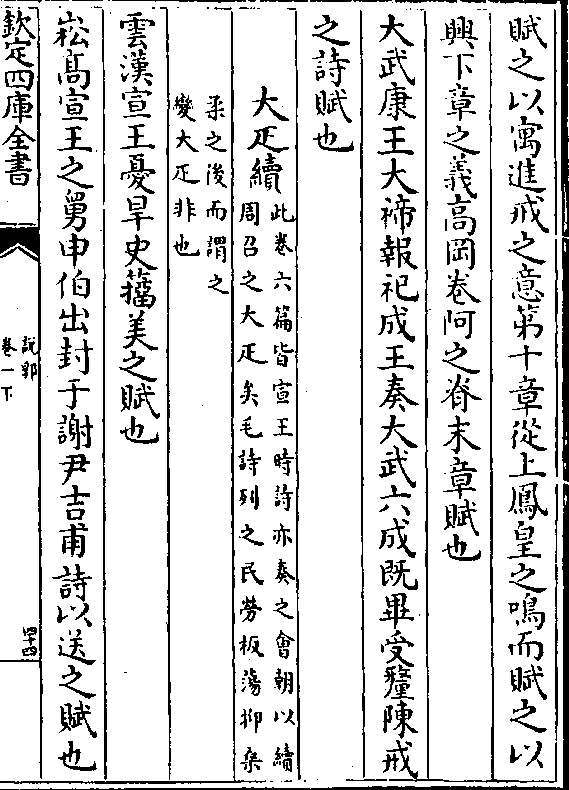 賦之以寓進戒之意第十章從上鳳皇之鳴而賦之以
興下章之義高岡卷阿之脊末章賦也
大武康王大禘報祀成王奏大武六成既畢受釐陳戒
之詩賦也
大疋續此卷六篇皆宣王時詩亦奏之會朝以續
周召之大疋矣毛詩列之民勞板蕩抑桑
柔之後而謂之
變大疋非也
雲漢宣王憂旱史籒美之賦也
崧高宣王之舅申伯出封于謝尹吉甫詩以送之賦也
欽定四庫全書
說郛
卷一下
四十四